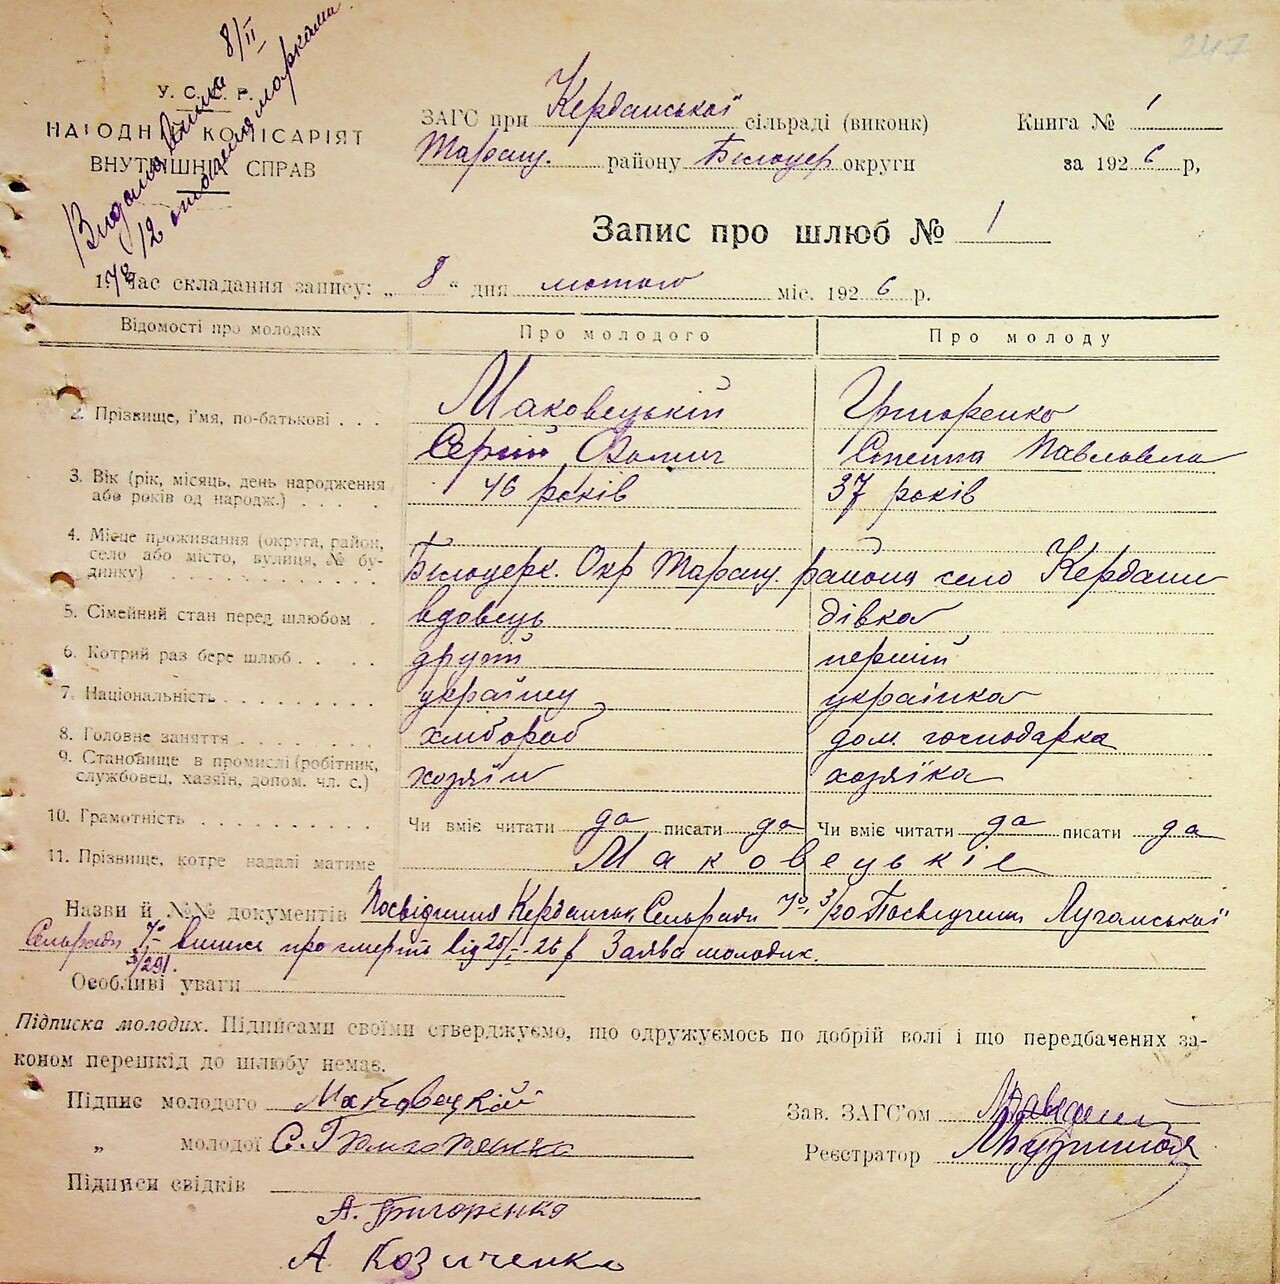 247
Видана Виписка 8/II
№ 12 марками
У. С. Р. Р.
НАРОДНІЙ КОМІСАРІЯТ
ВНУТРІШНІХ СПРАВ
ЗАГС при Керданської сільраді (виконк)
Таращ. району Білоцер округи
Книга № 1
за 1926 р,
Запис про шлюб № 1
1. Час складання запису: „ 8 “ дня лютого міс. 1926 р.
Відомості про молодих Про молодого Про молоду
2. Прізвище, і'мя, по-батькові . . . Маковецькій Григоренко
Сергій Павловна
3. Вік (рік, місяць, день народження або років од народж.) . . . . 46 років 37 років
4. Місце проживання (округа, район, село або місто, вулиця, № будинку) Білоцерк. Окр Таращ. района село Кердани
5. Сімейний стан перед шлюбом . вдовець дівка
6. Котрий раз бере шлюб . . . . другій першій
7. Національність . . . . . . . . . україн українка
8. Головне заняття . . . . . . . . хлібороб дом. господарка
9. Становище в промислі (робітник, службовец, хазяїн, допом. чл. с.) хозяїн хозяїка
10. Грамотність . . . . . . . . . . Чи вміє читати да писати да Чи вміє читати да писати да
11. Прізвище, котре надалі матиме Маковецькіе
Назви й №№ документів Посвідчення Керданськ. Сельради № 3/20 Посвідчення Лучанської
Сельради № 3/291. Випись про смерть від 25/I-26 р Заява молодих.
Особливі уваги
Підписка молодих. Підписами своїми стверджуємо, що одружуємось по добрій волі і що передбачених за-
коном перешкід до шлюбу немає.
Підпис молодого Маковецкій
„ молодої С.
Зав. ЗАГС'ом
Реєстратор
Підписи свідків
А. Григоренко
А Козиченко